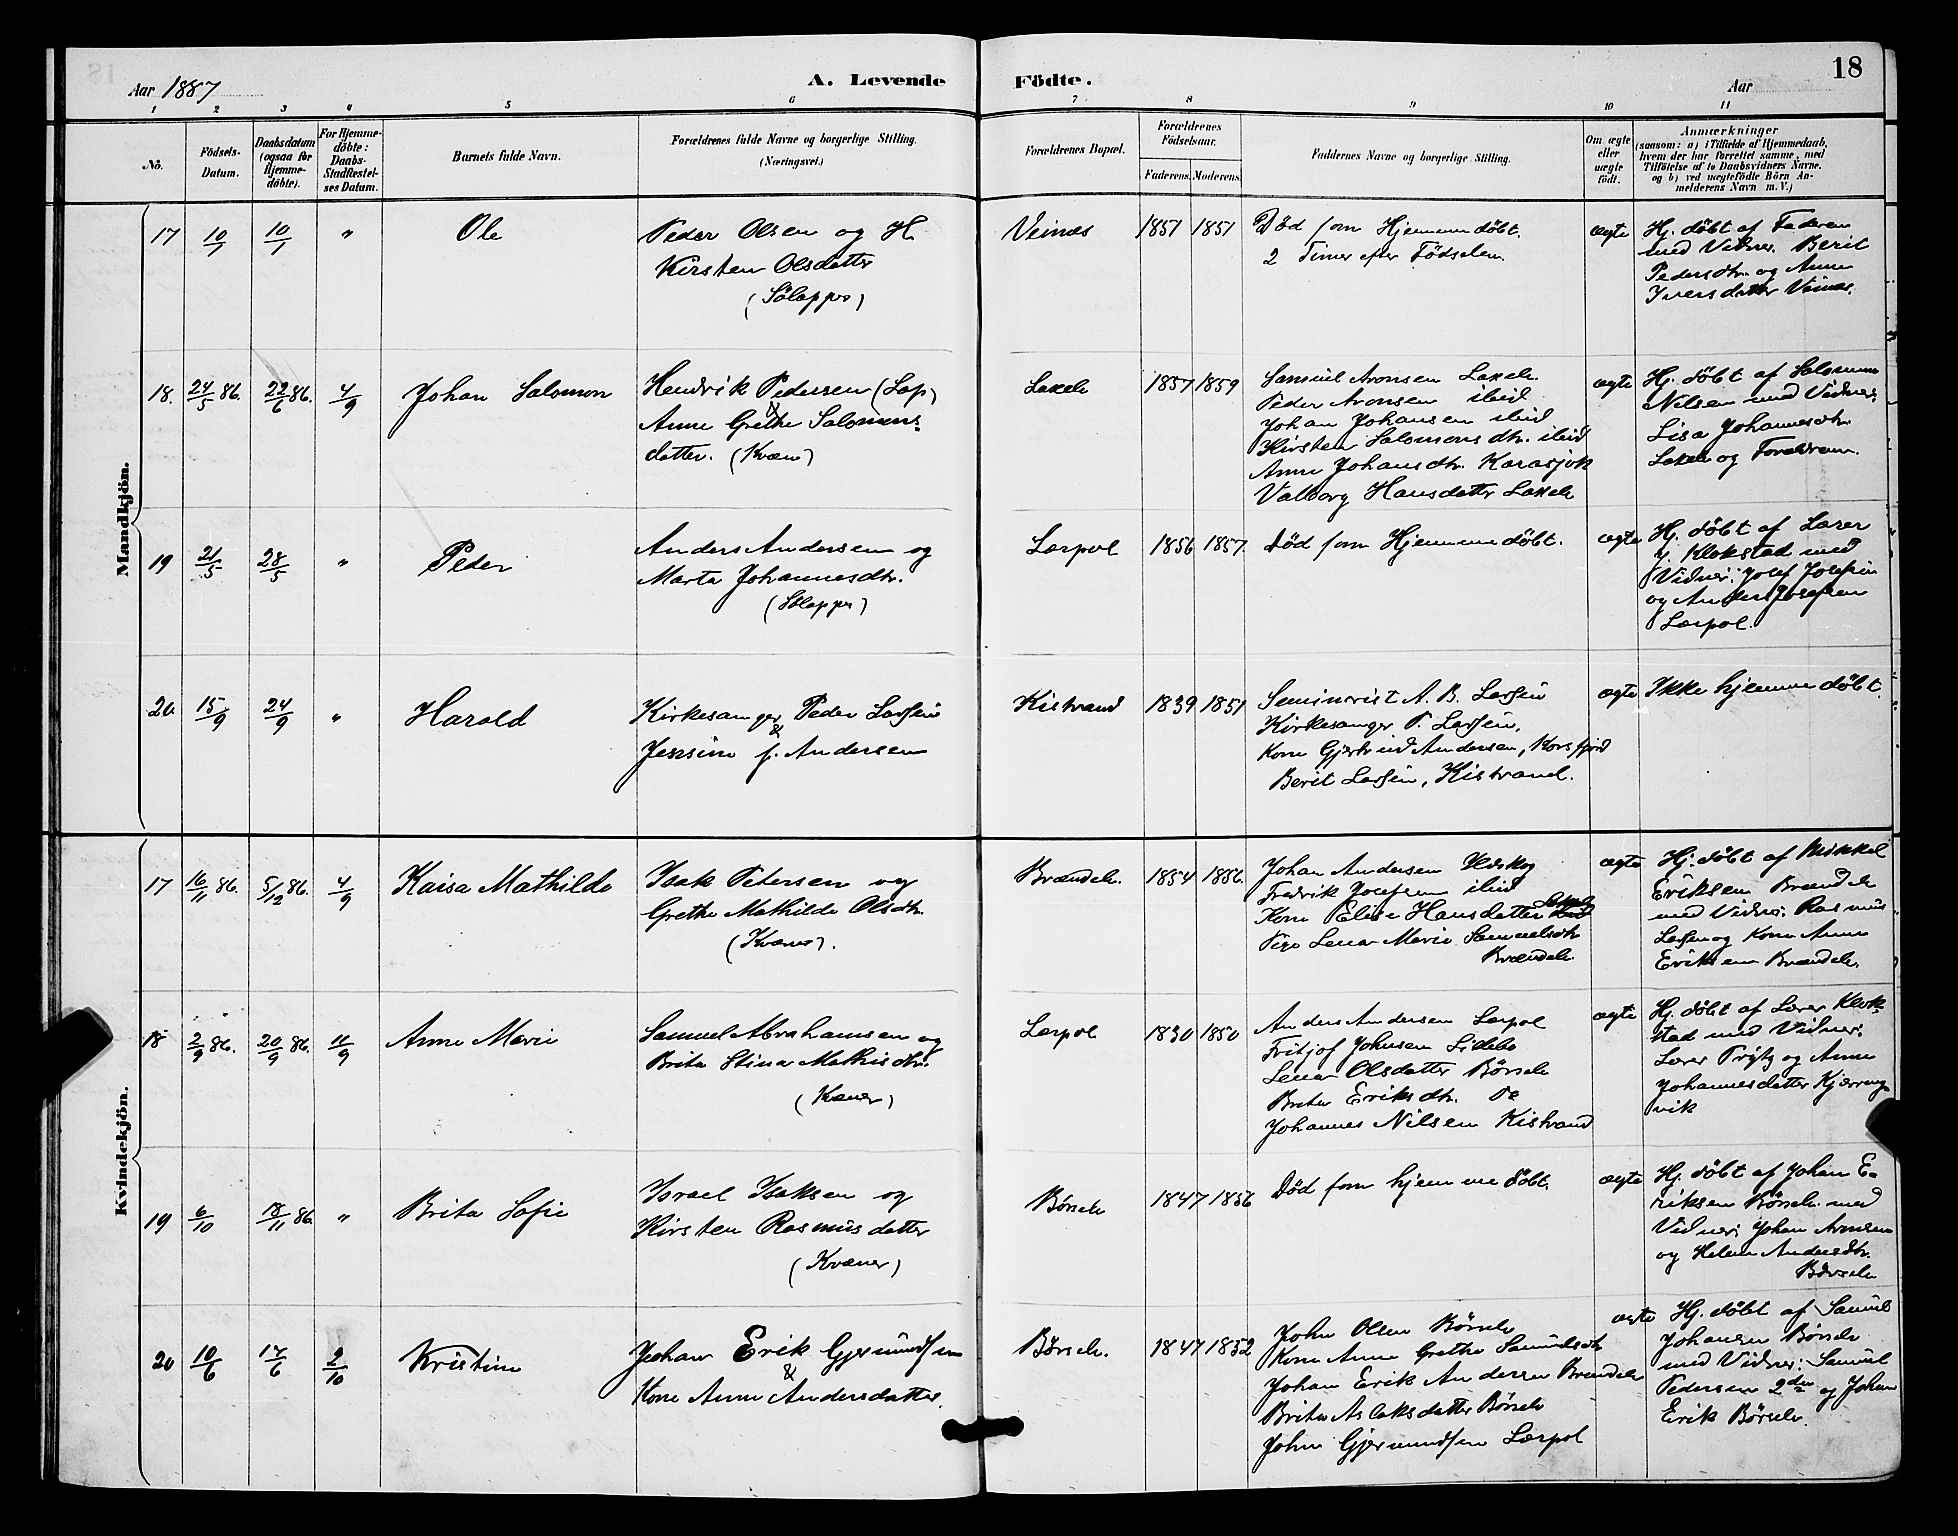 18
Aar 1887
A. Levende
Fødte.
Aar
1 2 3 4 5 6 7 8 9 10 11
No.
Fødsels-
Datum.
Daabsdatum
(ogsaa for
Hjemme-
døbte).
For Hjemme-
døbte:
Daabs-
Stadfæstel-
ses Datum.
Barnets fulde Navn.
Forældrenes fulde Navne og borgerlige Stilling.
(Næringsvei.)
Forældrenes Bopæl.
Forældrenes
Fødselsaar.
Faderens. Moderens.
Faddernes Navne og borgerlige Stilling.
Om ægte
eller
uægte
født.
Anmærkninger
(saasom: a) i Tilfælde af Hjemmedaab,
hvem der har forrettet samme, med
Tilføielse af to Daabsvidners Navne.
og b) ved uægtefødte Børn An-
melderens Navn m. V.)
Mandkjøn.
17 10/7 10/7 "
Ole
Peder Olsen og H.
Kirsten Olsdatter
(Sølapper)
Veinæs
1857 1851
Død som Hjemmedøbt.
2 Timer efter Fødselen.
ægte
Hj. døbt af Faderen
med Vidner. Berit
Pedersdtr. og Anne
Iversdatter Veinæs.
18. 24/5 86. 22/6 86. 4/9
Johan Salomon
Hendrik Pedersen (Lap)
&
Anne Grethe Salomons-
datter. (Kvæn)
Laxelv
1857 1859
Samuel Aronsen Laxelv.
Peder Aronsen ibid
Johan Johansen ibid
Kirsten Salomonsdtr. ibid
Anne Johansdtr. Karasjok
Valborg Hansdatter Laxelv
ægte
Hj. døbt af Salomon
Nilsen med Vidner:
Lisa Johannesdtr.
Laxelv og Forældrene.
19 21/5 28/5 "
Peder
Anders Andersen og
Marta Johannesdtr.
(Sølapper)
Lærpol
1856 1857.
Død som Hjemmedøbt.
ægte
Hj. døbt af Lærer
J. Klokstad med
Vidner: Josef Josefsen
og Anders Josefsen
Lærpol.
20 15/9 24/9 "
Harald
Kirkesanger Peder Larsen
&
Jensine f. Andersen
Kistrand
1839 1851
Seminarist A. B. Larsen
Kirkesanger P. Larsen,
Kone Gjertrud Andersen, Korsfjord
Berit Larsen, Kistrand.
ægte
Ikke hjemmedøbt.
Kvindekjøn.
17 16/11 86. 5/12 86. 4/9
Kaisa Mathilde
Isak Petersen og
Grethe Mathilde Olsdtr.
(Kvæner).
Brændelv.
1854 1856.
Johan Andersen
Fredrik Josefsen ibid
Kone Elise Hansdatter
Pige Lena Marie Samuelsdtr
Brændelv.
ægte
Hj. døbt af Mikkel
Eriksen Brændelv
med Vidner: Rasmus
Larsen og Kone Anne
Eriksen Brændelv.
18 2/9 86. 20/9 86. 11/9
Anne Marie
Samuel Abrahamsen og
Brita Stina Mathisdtr.
(Kvæner)
Lærpol
1830 1850
Anders Andersen Lærpol
Fritjof Johnsen Lidebo
Lena Olsdatter Børselv
Brita Eriksdtr. Do
Johannes Nilsen Kistrand
ægte
Hj. døbt af Lærer Klok-
stad med Vidner:
Lærer Prytz og Anne
Johannesdatter Kjærring-
vik
19 6/10 18/11 86. "
Brita Sofie
Israel Isaksen og
Kirsten Rasmusdatter
(Kvæner)
Børselv
1847 1856
Død som hjemmedøbt.
ægte
Hj. døbt af Johan E-
riksen Børselv med
Vidner: Johan Aronsen
og Helene Andersdtr.
Børselv
20 10/6 17/6 2/10
Kristine
Johan Erik Gjermundsen
&
Kone Anne Andersdatter.
Børselv.
1847 1852
John Olsen Børselv
Kone Anne Grethe Samuelsdtr
Johan Erik Andersen Brændelv
Brita Aslaksdatter Børselv
John Gjermundsen Lærpol
ægte
Hj. døbt af Samuel
Johansen Børselv
med Vidner: Samuel
Pedersen 2den og Johan
Erik Børselv.